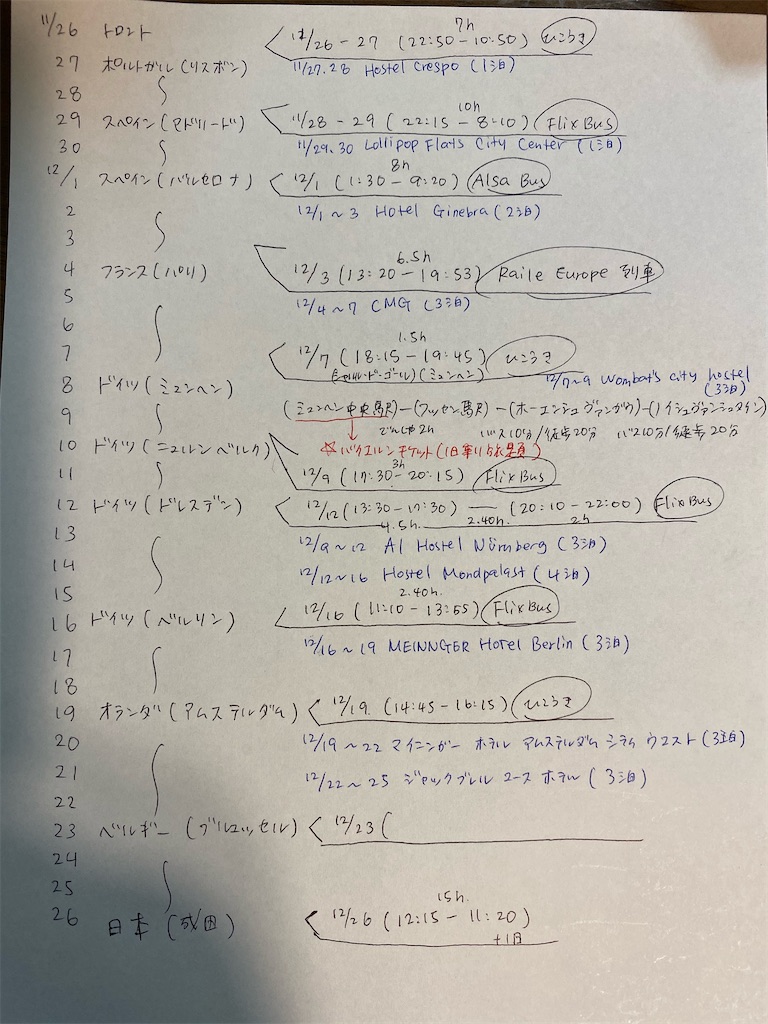 11/26 トロント 11/26-27 (22:50-10:50) 7h ひこうき
27 ポルトガル(リスボン) 11/27.28 Hostel Crespo (1泊)
28
29 スペイン(マドリード) 11/28-29 (22:15-8:10) 10h FlixBus
30 11/29.30 Lollipop Flats City Center (1泊)
12/1 スペイン(バルセロナ) 12/1 (1:30-9:20) 8h Alsa Bus
2 12/1~3 Hotel Ginebra (2泊)
3
4 フランス(パリ) 12/3 (13:20-19:53) 6.5h Raile Europe 列車
5 12/4~7 CMG (3泊)
6
7 12/7 (18:15-19:45) 1.5h ひこうき
(シャルル・ド・ゴール) (ミュンヘン)
8 ドイツ(ミュンヘン) 12/7~9 Wombat's city hostel (3泊)
9 (ミュンヘン中央駅)-(フッセン駅)-(ホーエンシュヴァンガウ)-(ノイシュヴァンシュタイン)
でんしゃ2h バス10分/徒歩20分 バス10分/徒歩20分
10 ドイツ(ニュルンベルク) ☆バイエルンチケット(1日乗り放題)
11 12/9 (17:30-20:15) 3h FlixBus
12 ドイツ(ドレスデン) 12/12 (13:30-17:30) — (20:10-22:00) FlixBus
4.5h. 2.40h. 2h
13 12/9~12 A1 Hostel Nürnberg (3泊)
14 12/12~16 Hostel Mondpalast (4泊)
15
16 ドイツ(ベルリン) 12/16 (11:10-13:55) 2.40h. FlixBus
17 12/16~19 MEINNGER Hotel Berlin (3泊)
18
19 オランダ(アムステルダム) 12/19. (14:45-16:15) ひこうき
20 12/19~22 マイニンガー ホテル アムステルダム シティ ウエスト (3泊)
21 12/22~25 ジャックブレル ユース ホテル (3泊)
22
23 ベルギー(ブルュッセル) 12/23 (
24
25
26 日本(成田) 12/26 (12:15-11:20) 15h.
+1日